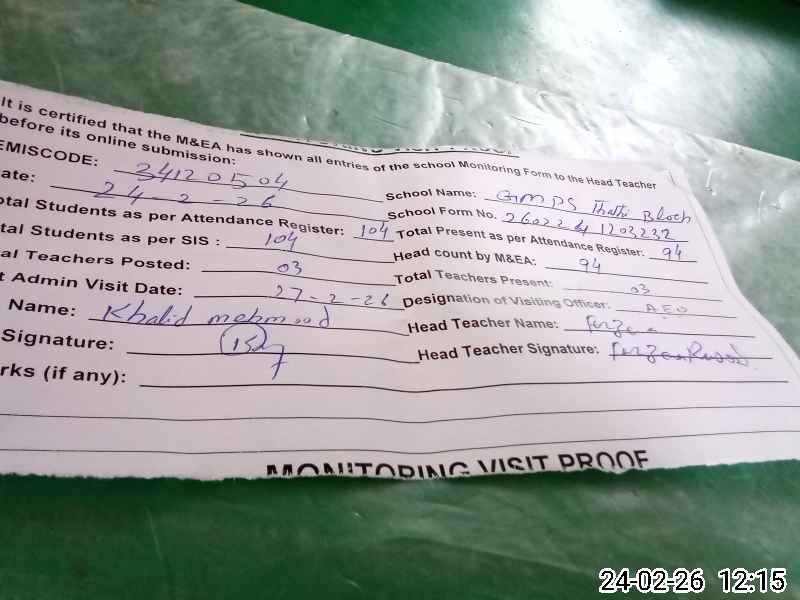 It is certified that the M&EA has shown all entries of the school Monitoring Form to the Head Teacher
before its online submission:
EMISCODE: 34120504
School Name: GMPS Thathi Bloch
ate: 24-2-26
School Form No. 26022441203232
otal Students as per Attendance Register: 104
Total Present as per Attendance Register: 94
tal Students as per SIS : 104
Head count by M&EA: 94
al Teachers Posted: 03
Total Teachers Present: 03
t Admin Visit Date: 27-2-26
Designation of Visiting Officer: AEO
Name: Khalid mehmood
Head Teacher Name:
Signature:
Head Teacher Signature:
rks (if any):
MONITORING VISIT PROOF
24-02-26 12:15